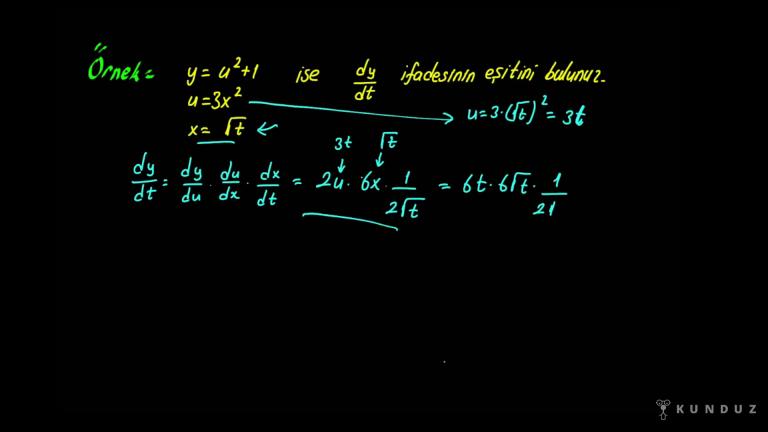 Örnek= y = u²+1 ise dy/dt ifadesinin eşitini bulunuz.
u=3x² → u=3·(√t)² = 3t
x= √t ←
3t √t
dy/dt = dy/du · du/dx · dx/dt = 2u · 6x · 1/2√t = 6t · 6√t · 1/21
KUNDUZ